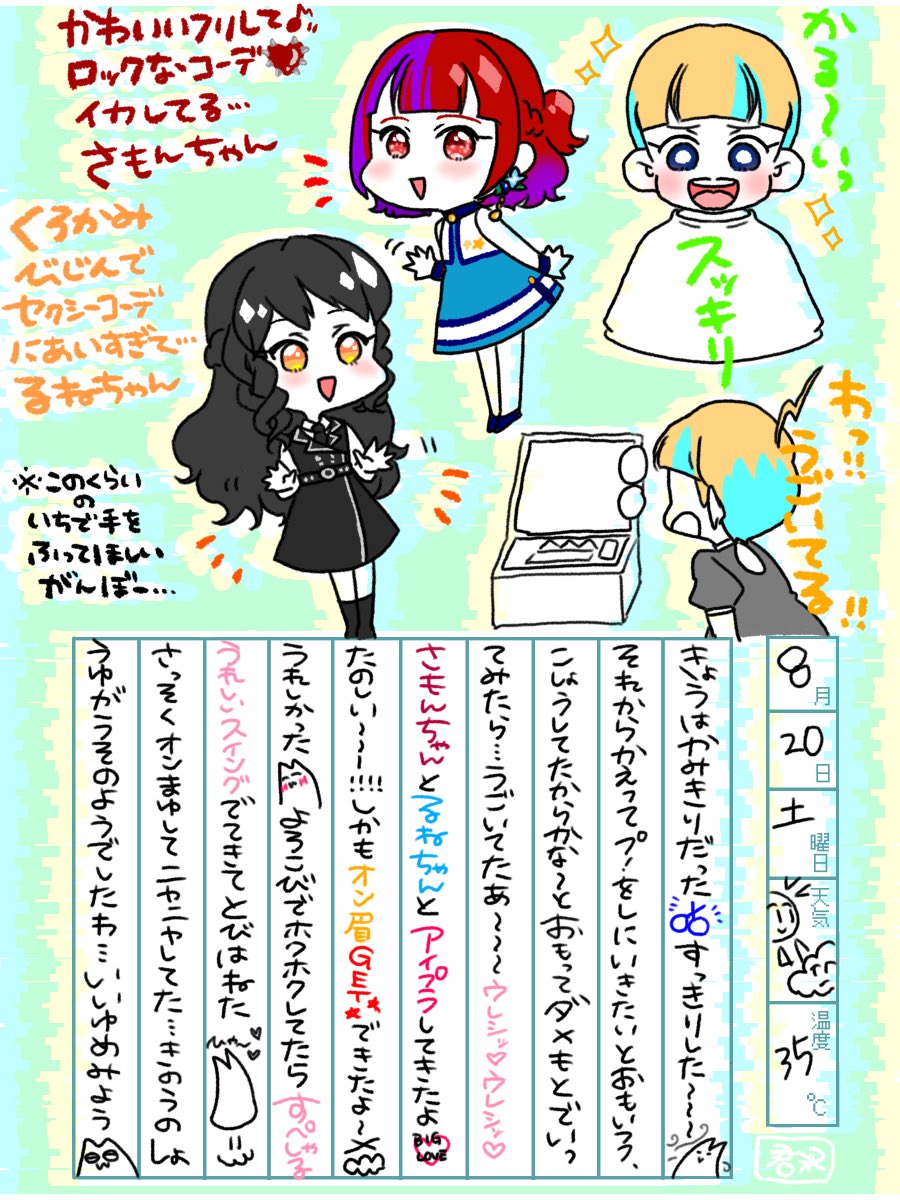 かわいいフリして♪
ロックなコーデ
イカしてる…
さもんちゃん
かる〜いっ
スッキリ
くろかみ
びじんで
セクシーコーデ
にあいすぎて…
るねちゃん
※このくらい
の
いちで手を
ふってほしい
がんぼー…
わっ!!
うごいてる!!
8月
20日
土曜日
天気
温度
35℃
きょうはかみきりだった すっきりした〜〜〜
それからかえってプ!をしにいきたいとおもいつつ、
こしょうしてたからかな〜とおもってダメもとでいっ
てみたら…うごいてたあ〜〜〜〜ウレシッ♡ウレシッ♡
さもんちゃんとるねちゃんとアイプラしてきたよ BIG LOVE
たのしい〜〜!!!!しかもオン眉GET★できたよ〜
うれしかった よろこびでホクホクしてたらすぺしゃる
うれしいスイングでてきてとびはねた ぴょん♡♡
さっそくオンまゆしてニヤニヤしてた…きのうのしょ
うゆがうそのようでしたわ…いいゆめみよう